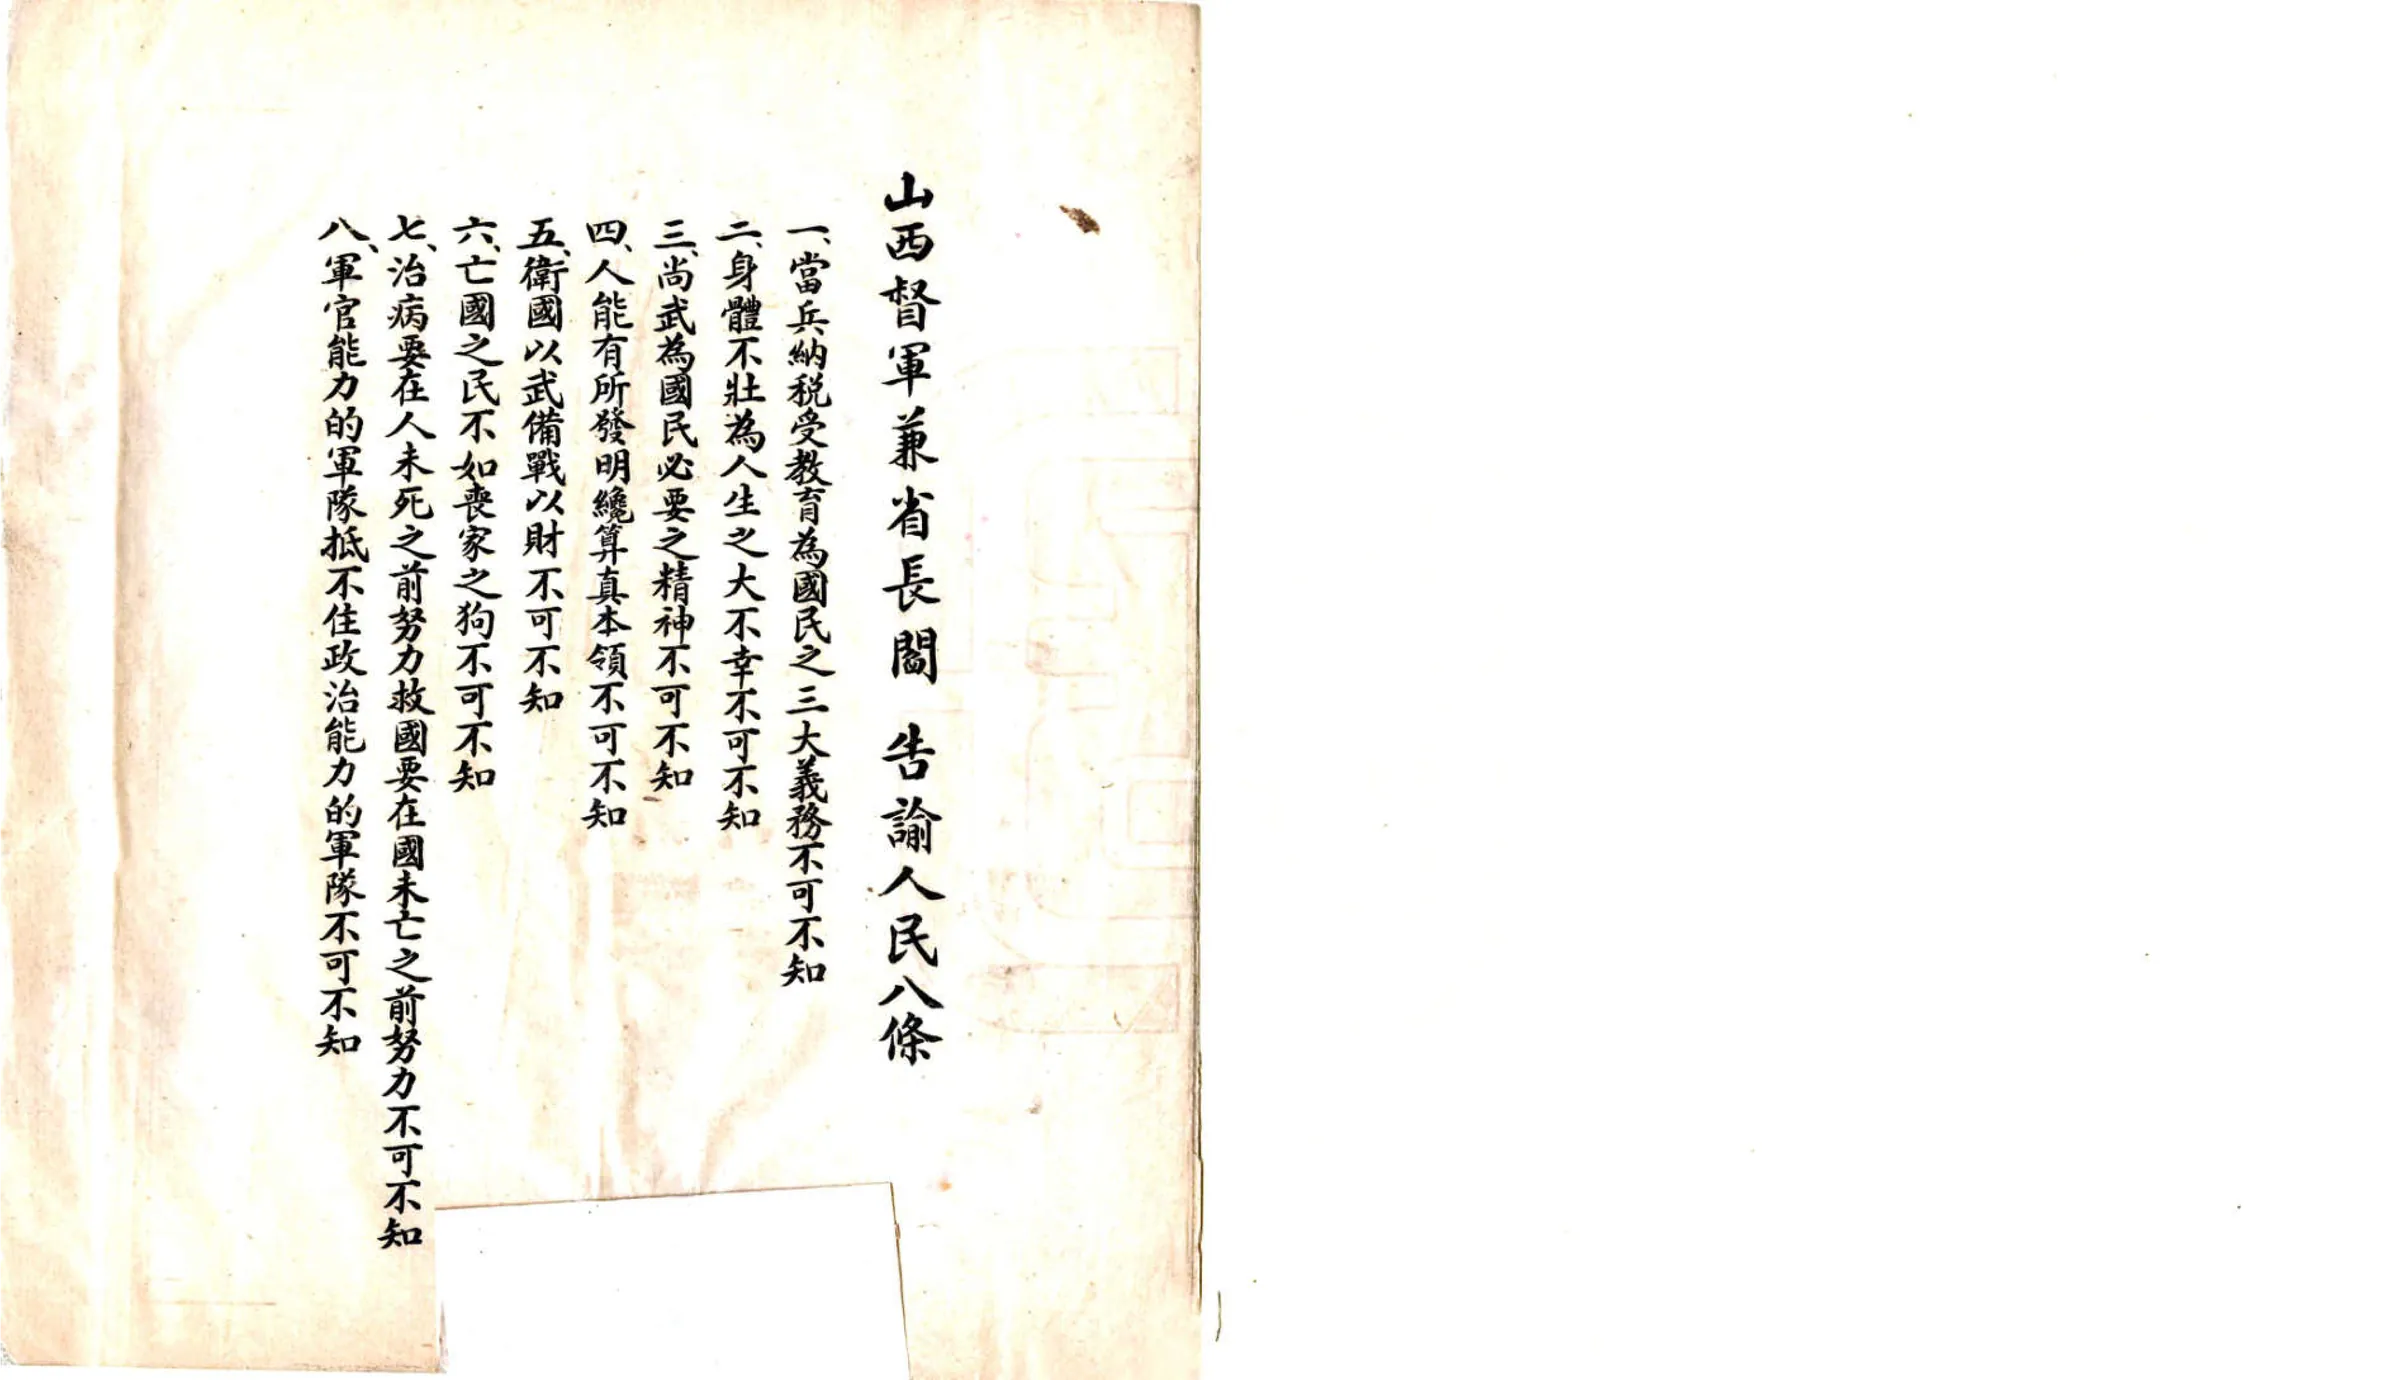 山西督軍兼省長閻　告諭人民八條
一、當兵納税受教育為國民之三大義務不可不知
二、身體不壯為人生之大不幸不可不知
三、尚武為國民必要之精神不可不知
四、人能有所發明纔算真本領不可不知
五、衛國以武備戰以財不可不知
六、亡國之民不如喪家之狗不可不知
七、治病要在人未死之前努力救國要在國未亡之前努力不可不知
八、軍官能力的軍隊抵不住政治能力的軍隊不可不知